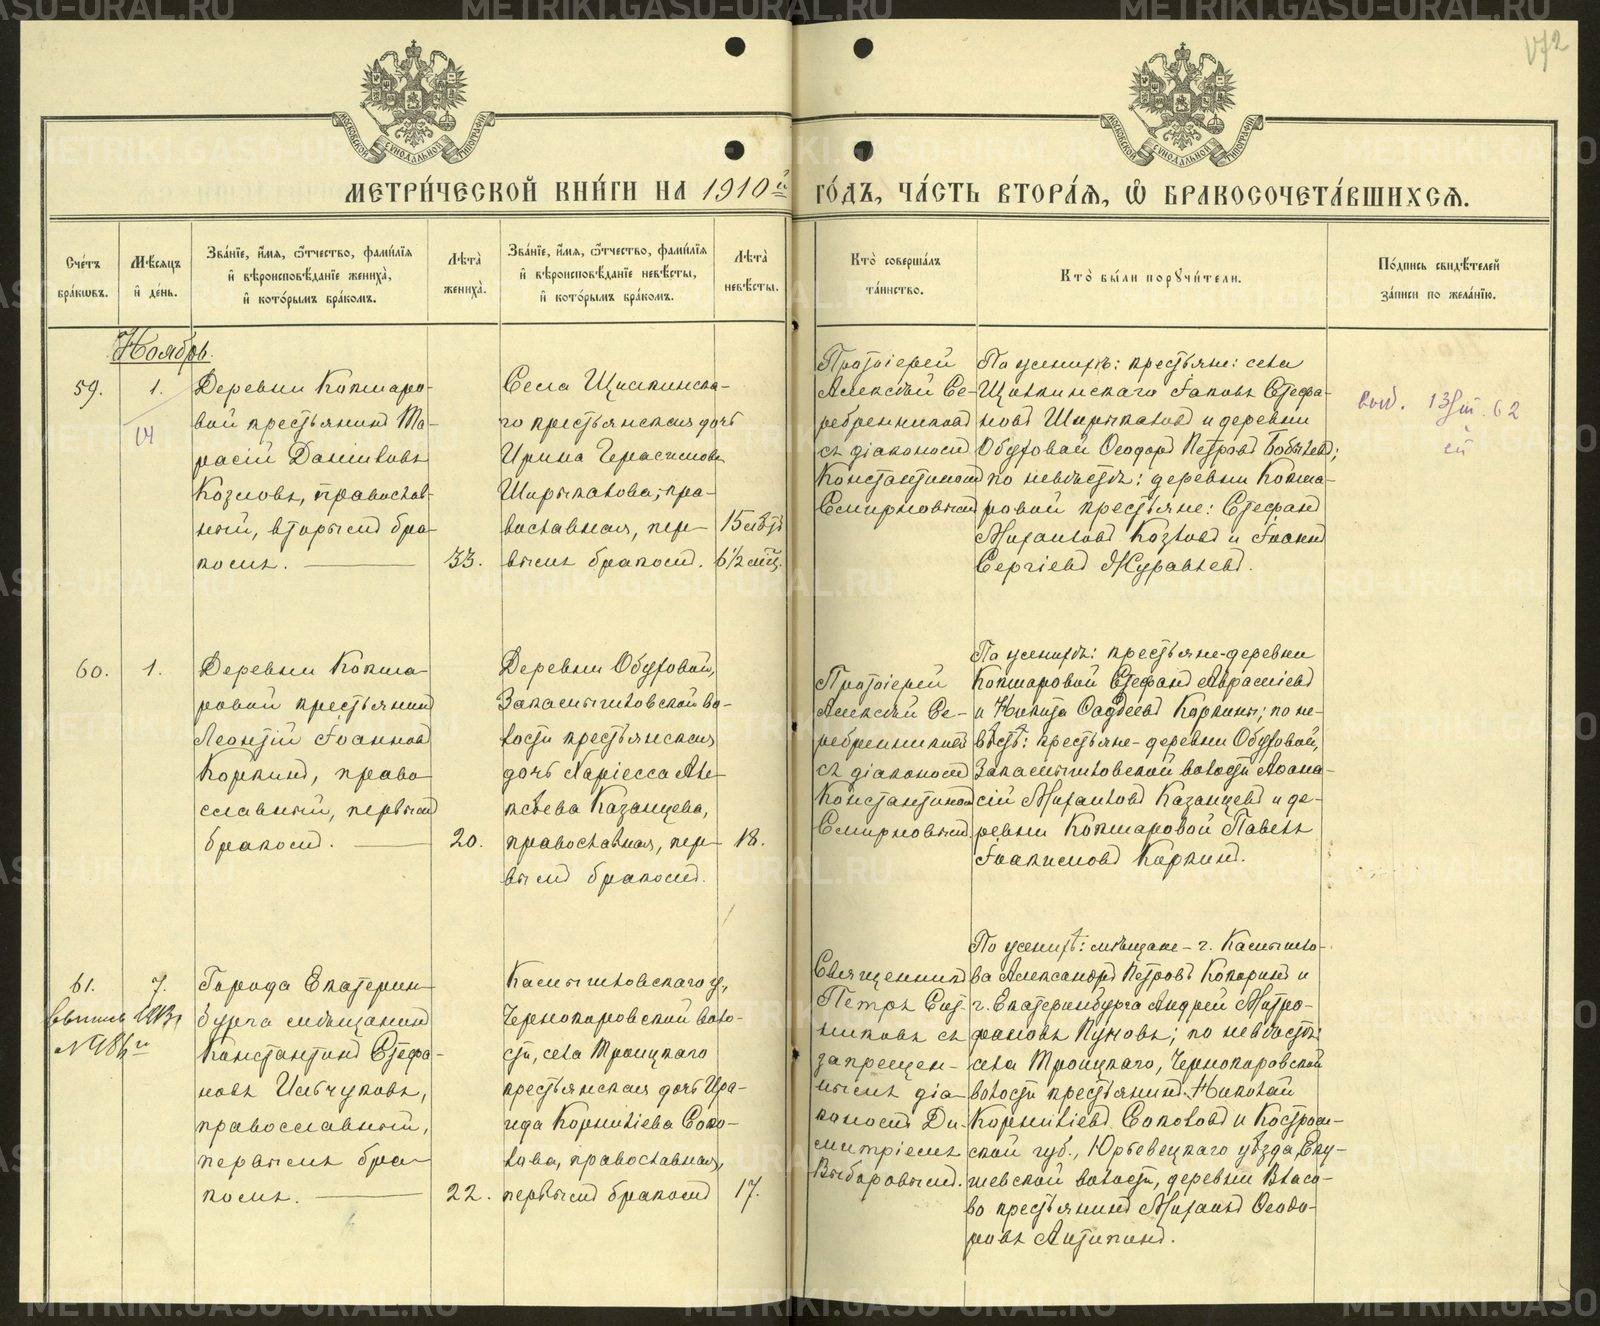 172
МЕТРИ́ЧЕСКОЙ КНИ́ГИ НА 1910й
ГО́ДЪ, ЧА́СТЬ ВТОРА́Я, Ѡ БРАКОСОЧЕТА́ВШИХСѦ.
Сче́тъ бра́кѡвъ.
Мѣ́сяцъ и҆ де́нь.
Зва́нїе, и҆́мя, ѻ҆́тчество, фами́лїя
и҆ вѣроисповѣ́данїе жениха̀,
и҆ кото́рымъ бра́комъ.
Лѣта̀ жениха̀.
Зва́нїе, и҆́мя, ѻ҆́тчество, фами́лїя
и҆ вѣроисповѣ́данїе невѣ́сты,
и҆ кото́рымъ бра́комъ.
Лѣта̀ невѣ́сты.
Кто̀ соверша́лъ
та́инство.
Кто̀ бы́ли порꙋчи́тели.
По́дпись свидѣ́телей
за́писи по жела́нїю.
Ноябрь.
59.
1.
Деревни Кокшаро-
вой крестьянинъ Та-
расій Даніиловъ
Козловъ, православ-
ный, вторымъ бра-
комъ.
33.
Села Щипкинска-
го крестьянская дочь
Ирина Герасимова
Ширыкалова, пра-
вославная, пер-
вымъ бракомъ.
15 лѣтъ
6½ мѣц.
Протоіерей
Алексѣй Се-
ребренниковъ
съ діакономъ
Константиномъ
Смирновымъ
По женихѣ: крестьяне: села
Іаковъ Стефа-
новъ Ширыкаловъ и деревни
Обуховой Ѳеодоръ Петровъ Бобылевъ;
по невѣстѣ: деревни Кокша-
ровой крестьяне: Стефанъ
Михаиловъ Козловъ и Іоаннъ
Сергіевъ Журавлевъ.
60.
1.
Деревни Кокша-
ровой крестьянинъ
Леонтій Іоанновъ
Коркинъ, право-
славный, первымъ
бракомъ.
20.
Деревни Обуховой,
Закамышловской во-
лости крестьянская
дочь Ларіесса Але-
ксѣева Казанцева,
православная, пер-
вымъ бракомъ.
18.
Протоіерей
Алексѣй Се-
ребренниковъ
съ діакономъ
Константиномъ
Смирновымъ.
По женихѣ: крестьяне-деревни
Кокшаровой Стефанъ Авраміевъ
и Никита Ѳаддеевъ Коркины; по не-
вѣстѣ: крестьяне-деревни Обуховой,
Закамышловской волости Аѳана-
сій Михаиловъ Казанцевъ и де-
ревни Кокшаровой Павелъ
Іоакимовъ Коркинъ.
61.
7.
Города Екатерин-
бурга мѣщанинъ
Константинъ Стефа-
новъ Ильчуковъ,
православный,
первымъ бра-
комъ.
22.
Камышловскаго у,
Чернокоровской воло-
сти, села Троицкаго
крестьянская дочь Ира-
ида Корниліева Соко-
лова, православная,
первымъ бракомъ
17.
Священникъ
Петръ
съ
запрещен-
нымъ діа-
кономъ Ди-
митріемъ
Выборовымъ.
По женихѣ: мѣщане-г. Камышло-
ва Александръ Петровъ Кокоринъ и
г. Екатеринбурга Андрей Митро-
фановъ Пумовъ; по невѣстѣ:
села Троицкаго, Чернокоровской
волости крестьянинъ Николай
Корниліевъ Соколовъ и Костром-
ской губ., Юрьевецкаго уѣзда,
волости, деревни Власо-
во крестьянинъ Михаилъ Ѳеодо-
ровъ Антипинъ.
METRIKI.GASU-URAL.RU